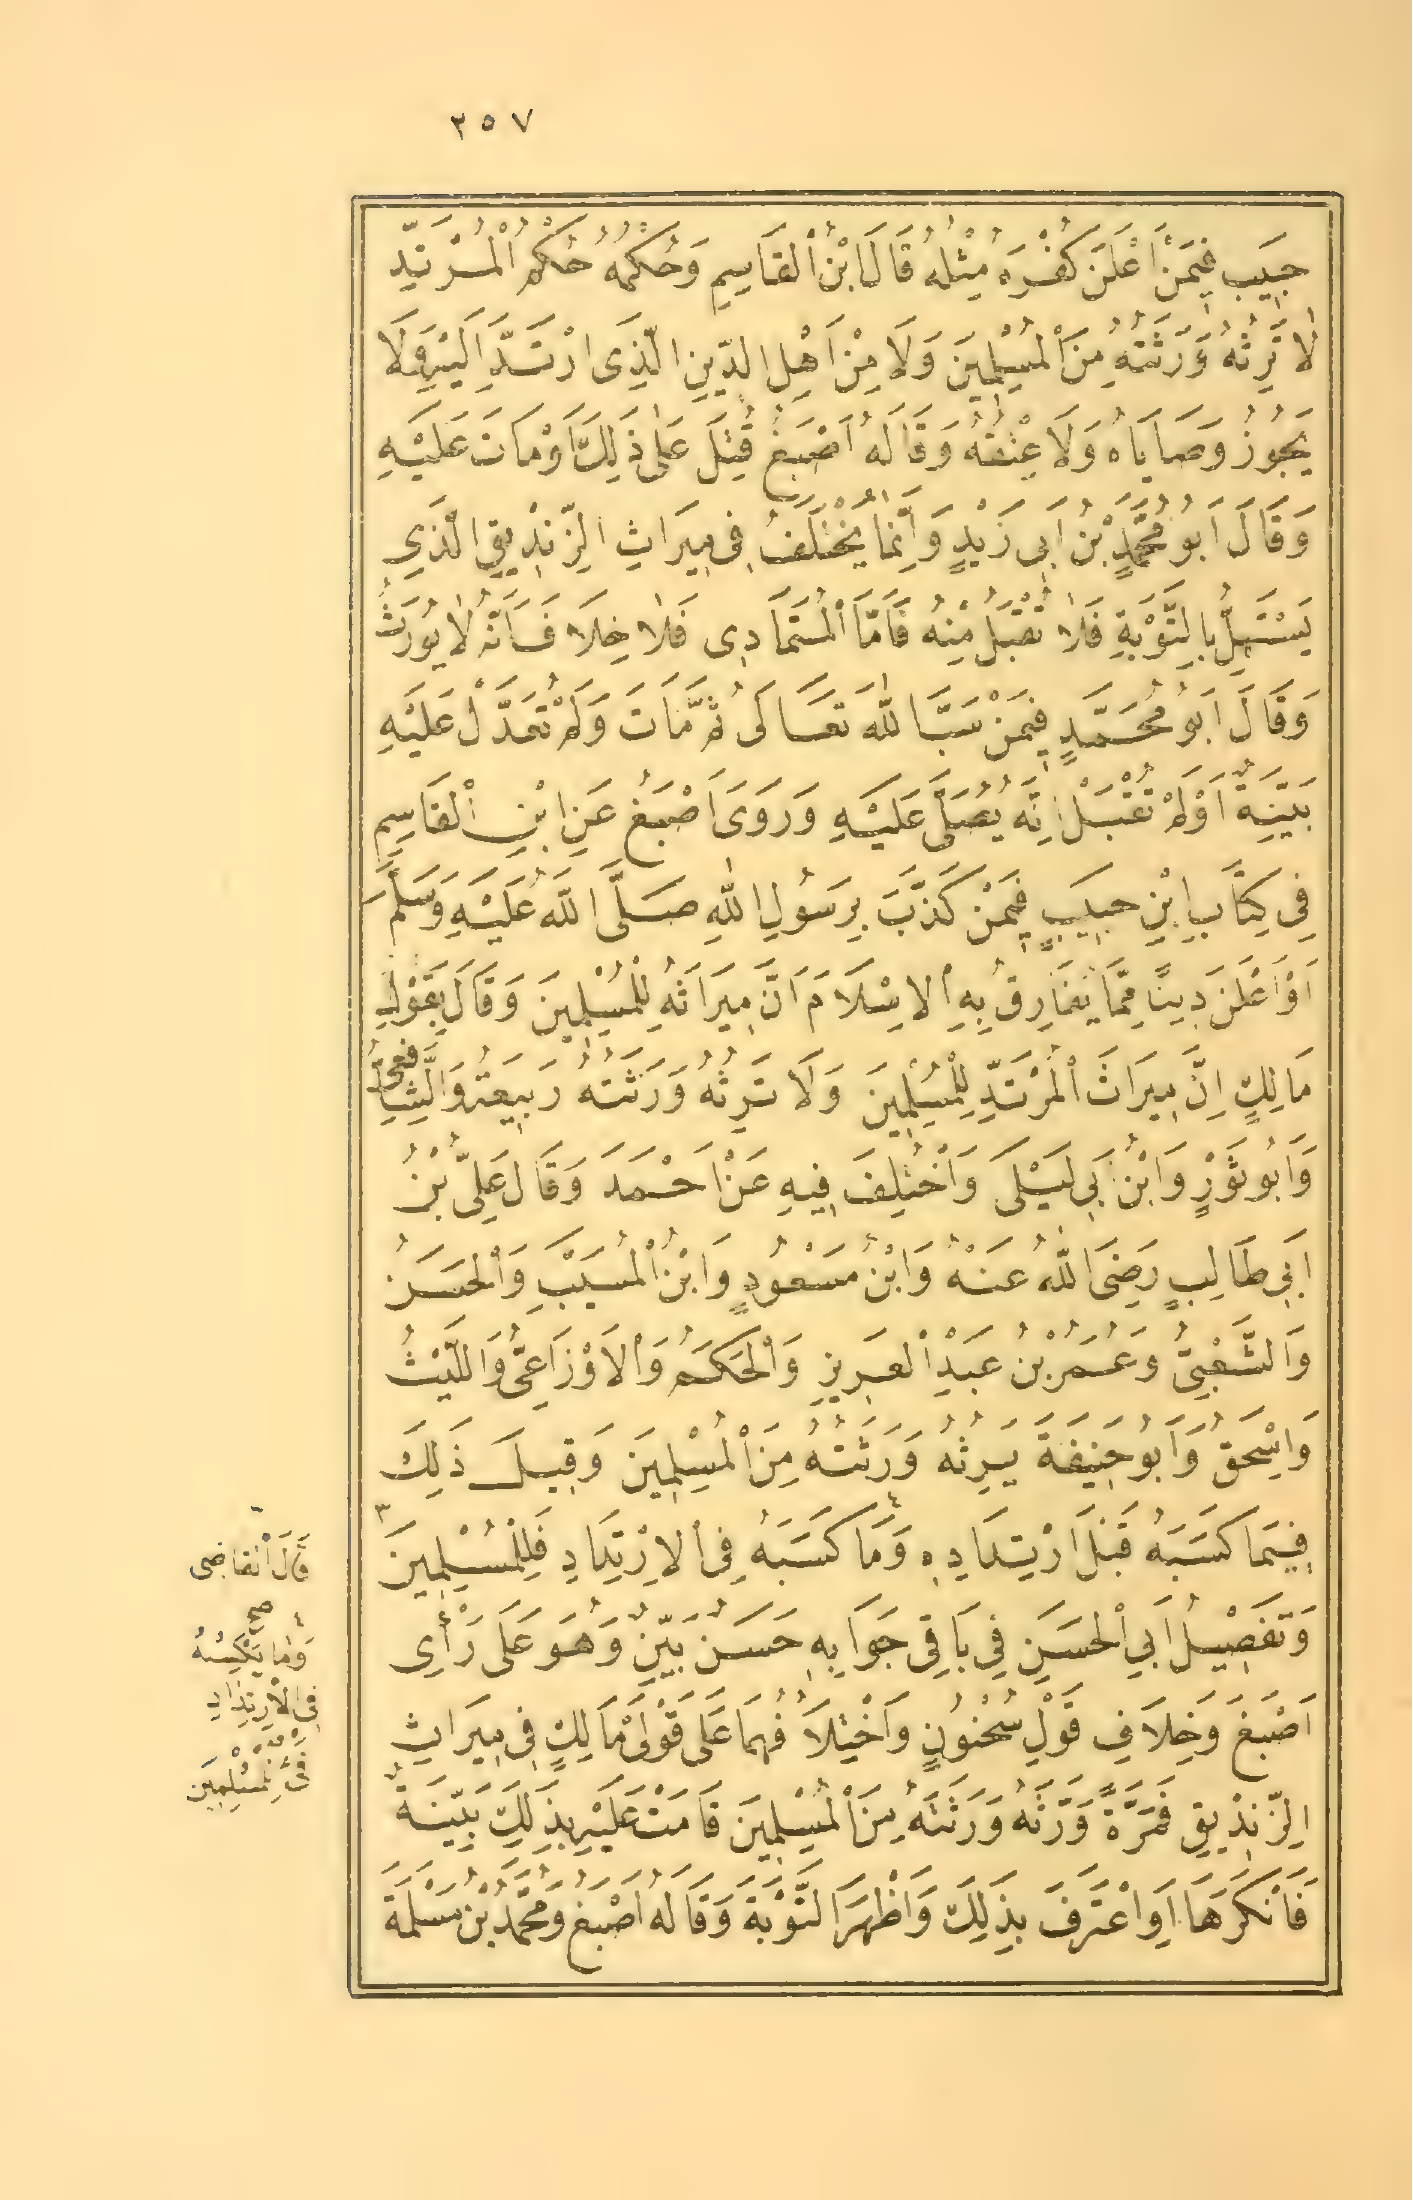 ٢٥٧
حَبِيبٍ فِيمَنْ اَعْلَنَ كُفْرَهُ مِثْلُهُ قَالَ ابْنُ الْقَاسِمِ وَحُكْمُهُ حُكْمُ الْمُرْتَدِّ
لَا تَرِثُهُ وَرَثَتُهُ مِنَ الْمُسْلِمِينَ وَلَا مِنْ اَهْلِ الدِّينِ الَّذِى ارْتَدَّ اِلَيْهِ وَلَا
يَجُوزُ وَصَايَاهُ وَلَا عِتْقُهُ وَقَالَهُ اَصْبَغُ قُتِلَ عَلَى ذٰلِكَ اَوْ مَاتَ عَلَيْهِ
وَقَالَ اَبُو مُحَمَّدِ بْنُ اَبِى زَيْدٍ وَاِنَّمَا يُخْتَلَفُ فِى مِيرَاثِ الزِّنْدِيقِ الَّذِى
يَسْتَهِلُّ بِالتَّوْبَةِ فَلَا تُقْبَلُ مِنْهُ فَاَمَّا الْمُتَمَادِى فَلَا خِلَافَ اَنَّهُ لَا يُورَثُ
وَقَالَ اَبُو مُحَمَّدٍ فِيمَنْ سَبَّ اللّٰهَ تَعَالَى ثُمَّ مَاتَ وَلَمْ تُعَدَّلْ عَلَيْهِ
بَيِّنَةٌ اَوْ لَمْ تُقْبَلْ اِنَّهُ يُصَلَّى عَلَيْهِ وَرَوَى اَصْبَغُ عَنِ ابْنِ الْقَاسِمِ
فِى كِتَابِ ابْنِ حَبِيبٍ فِيمَنْ كَذَّبَ بِرَسُولِ اللّٰهِ صَلَّى اللّٰهُ عَلَيْهِ وَسَلَّمَ
اَوْ اَعْلَنَ دِينًا مِمَّا يُفَارِقُ بِهِ الْاِسْلَامَ اَنَّ مِيرَاثَهُ لِلْمُسْلِمِينَ وَقَالَ بِقَوْلِ
مَالِكٍ اِنَّ مِيرَاثَ الْمُرْتَدِّ لِلْمُسْلِمِينَ وَلَا تَرِثُهُ وَرَثَتُهُ رَبِيعَةُ وَالشَّافِعِىُّ
وَاَبُو ثَوْرٍ وَابْنُ اَبِى لَيْلَى وَاخْتُلِفَ فِيهِ عَنْ اَحْمَدَ وَقَالَ عَلِىُّ بْنُ
اَبِى طَالِبٍ رَضِىَ اللّٰهُ عَنْهُ وَابْنُ مَسْعُودٍ وَابْنُ الْمُسَيَّبِ وَالْحَسَنُ
وَالشَّعْبِىُّ وَعُمَرُ بْنُ عَبْدِ الْعَزِيزِ وَالْحَكَمُ وَالْاَوْزَاعِىُّ وَاللَّيْثُ
وَاِسْحٰقُ وَاَبُو حَنِيفَةَ يَرِثُهُ وَرَثَتُهُ مِنَ الْمُسْلِمِينَ وَقِيلَ ذَلِكَ
فِيمَا كَسَبَهُ قَبْلَ ارْتِدَادِهِ ٤ وَمَا كَسَبَهُ فِى الْاِرْتِدَادِ فَلِلْمُسْلِمِينَ ٣
وَتَفْصِيلُ اَبِى الْحَسَنِ فِى بَاقِى جَوَابِهِ حَسَنٌ بَيِّنٌ وَهُوَ عَلَى رَأْىِ
اَصْبَغَ وَخِلَافِ قَوْلِ سُحْنُونٍ وَاخْتِلَافُهُمَا عَلَى قَوْلَىْ مَالِكٍ فِى مِيرَاثِ
الزِّنْدِيقِ فَمَرَّةً وَرَّثَهُ وَرَثَتَهُ مِنَ الْمُسْلِمِينَ قَامَتْ عَلَيْهِ بِذَلِكَ بَيِّنَةٌ
فَاَنْكَرَهَا اَوِ اعْتَرَفَ بِذَلِكَ وَاَظْهَرَ التَّوْبَةَ وَقَالَهُ اَصْبَغُ وَمُحَمَّدُ بْنُ مَسْلَمَةَ
قَالَ الْقَاضِى
صح
٤
وَمَا يَكْسِبُهُ
فِى الْاِرْتِدَادِ
لِلْمُسْلِمِينَ